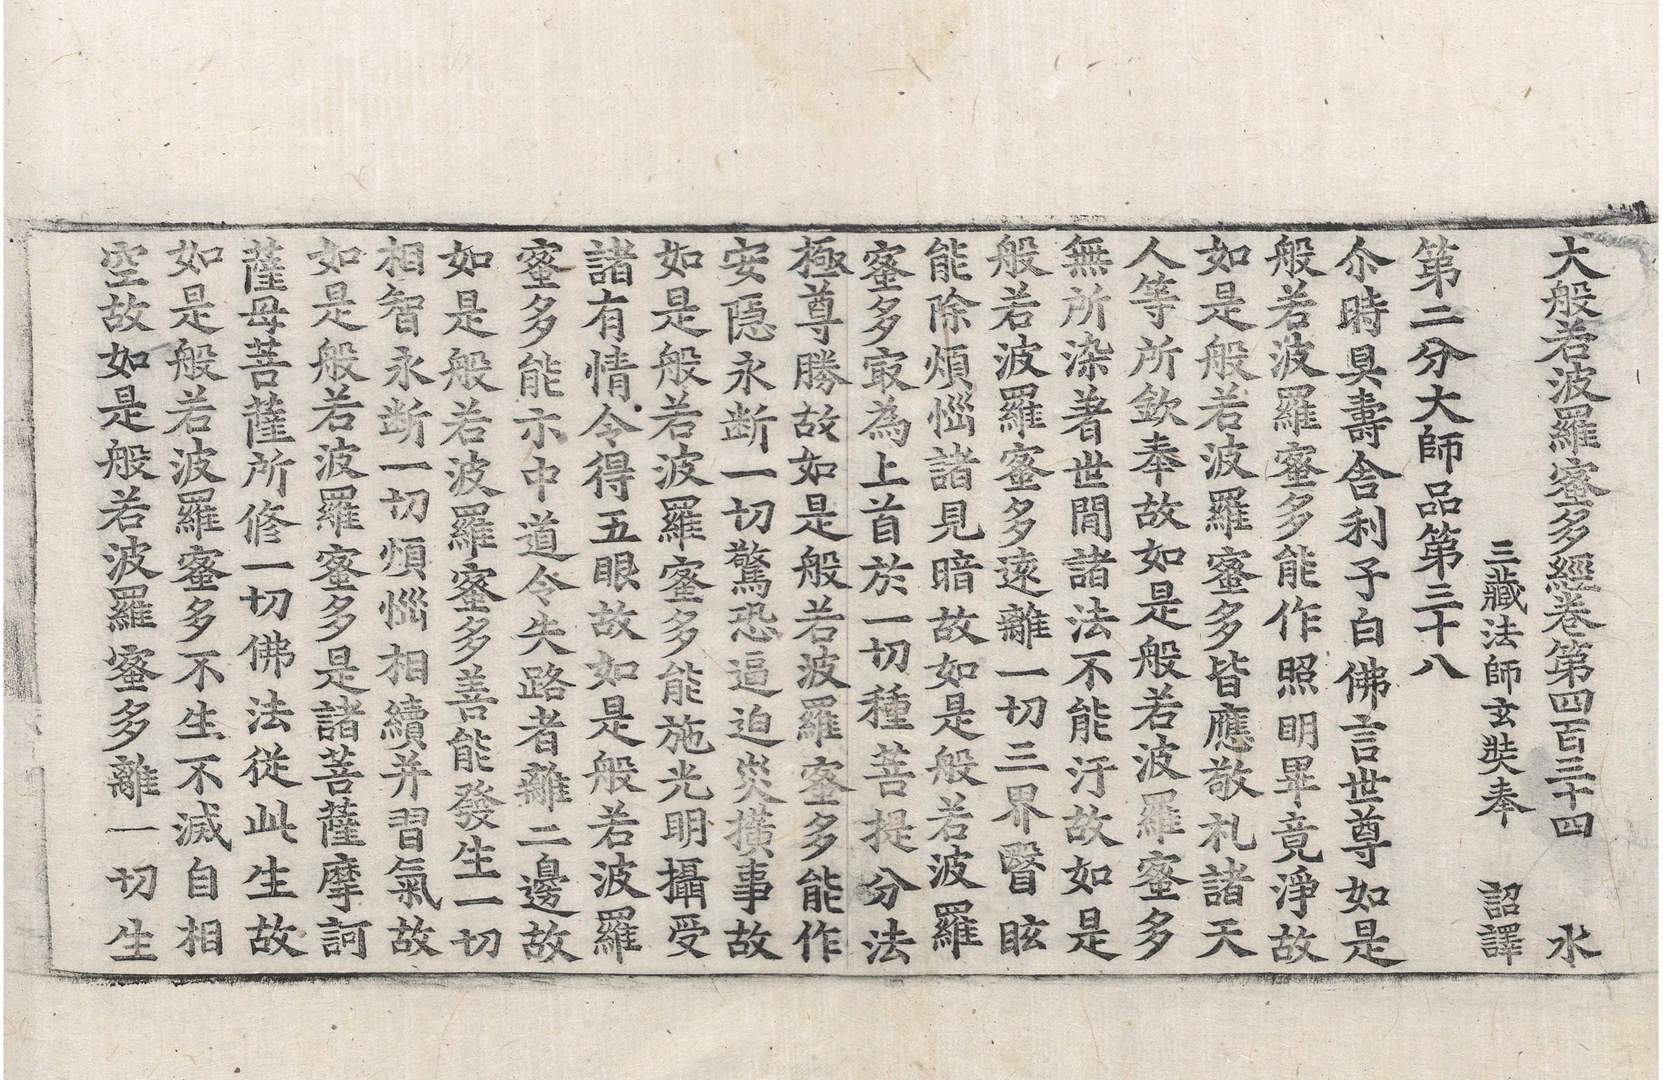 大般若波羅蜜多經卷第四百三十四　水
三藏法師玄奘奉　詔譯
第二分大師品第三十八
尒時具壽舍利子白佛言世尊如是
般若波羅蜜多能作照明畢竟淨故
如是般若波羅蜜多皆應敬礼諸天
人等所欽奉故如是般若波羅蜜多
無所染著世間諸法不能汙故如是
般若波羅蜜多遠離一切三界翳眩
能除煩惱諸見暗故如是般若波羅
蜜多㝡為上首於一切種菩提分法
極尊勝故如是般若波羅蜜多能作
安隠永断一切驚恐逼迫灾橫事故
如是般若波羅蜜多能施光明攝受
諸有情令得五眼故如是般若波羅
蜜多能示中道令失路者離二邊故
如是般若波羅蜜多善能發生一切
相智永断一切煩惱相續并習氣故
如是般若波羅蜜多是諸菩薩摩訶
薩母菩薩所修一切佛法從此生故
如是般若波羅蜜多不生不滅自相
空故如是般若波羅蜜多離一切生